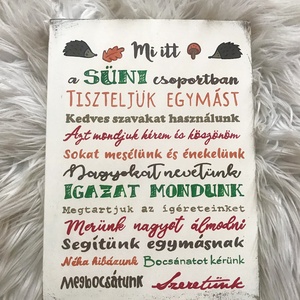 Mi itt
a SÜNI csoportban
TISZTELJÜK EGYMÁST
Kedves szavakat használunk
Azt mondjuk kérem is köszönöm
Sokat mesélünk és énekelünk
Nagyokat nevetünk
IGAZAT MONDUNK
Megtartjuk az ígéreteinket
Merünk nagyot álmodni
Segítünk egymásnak
Néha hibázunk Bocsánatot kérünk
Megbocsátunk Szeretünk